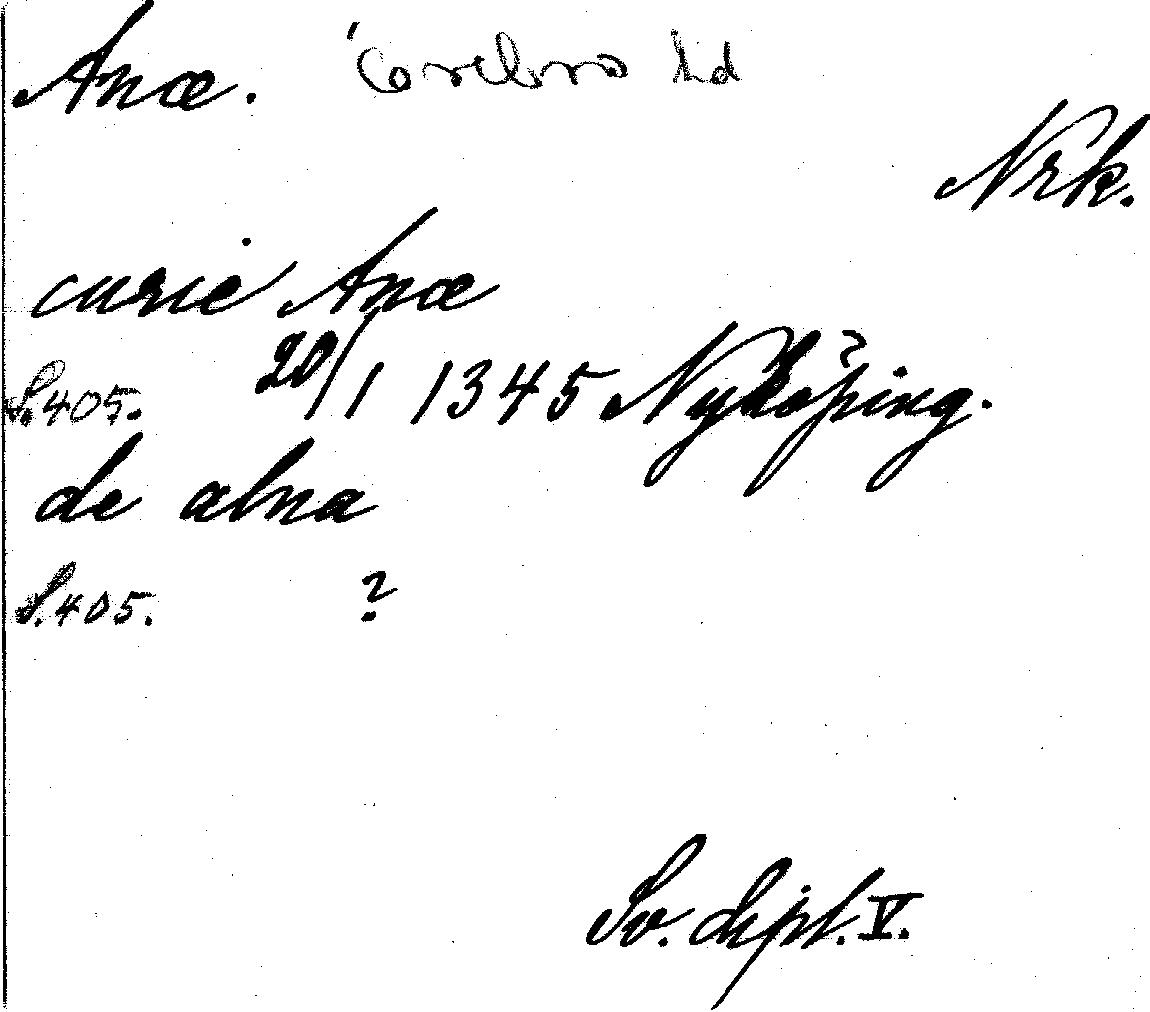 Anæ. Örebro hd
Nrk.
curie Anæ
S.405. 20/1 1345 Nyköping.
de alna
S.405. ?
Sv. dipl. V.